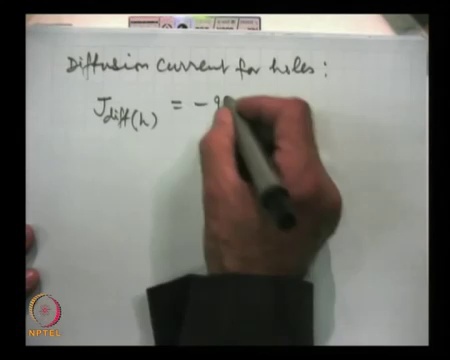 Diffusion current for holes :
J diff(h) = - q
NPTEL